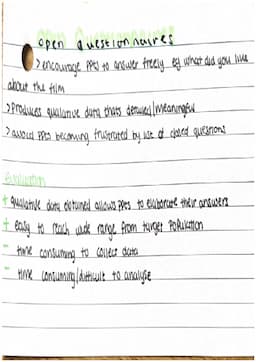 open questionnaires
> encourage PPTS to answer freely eg what did you like
about the film
> produces qualitative data thats detailed/meaningful
> avoid PPTS becoming frustrated by use of closed questions
Evaluation
+ qualitative data obtained allows PPTS to elaborate their answers
+ easy to reach wide range from target population
- time consuming to collect data
- time consuming/difficult to analyse